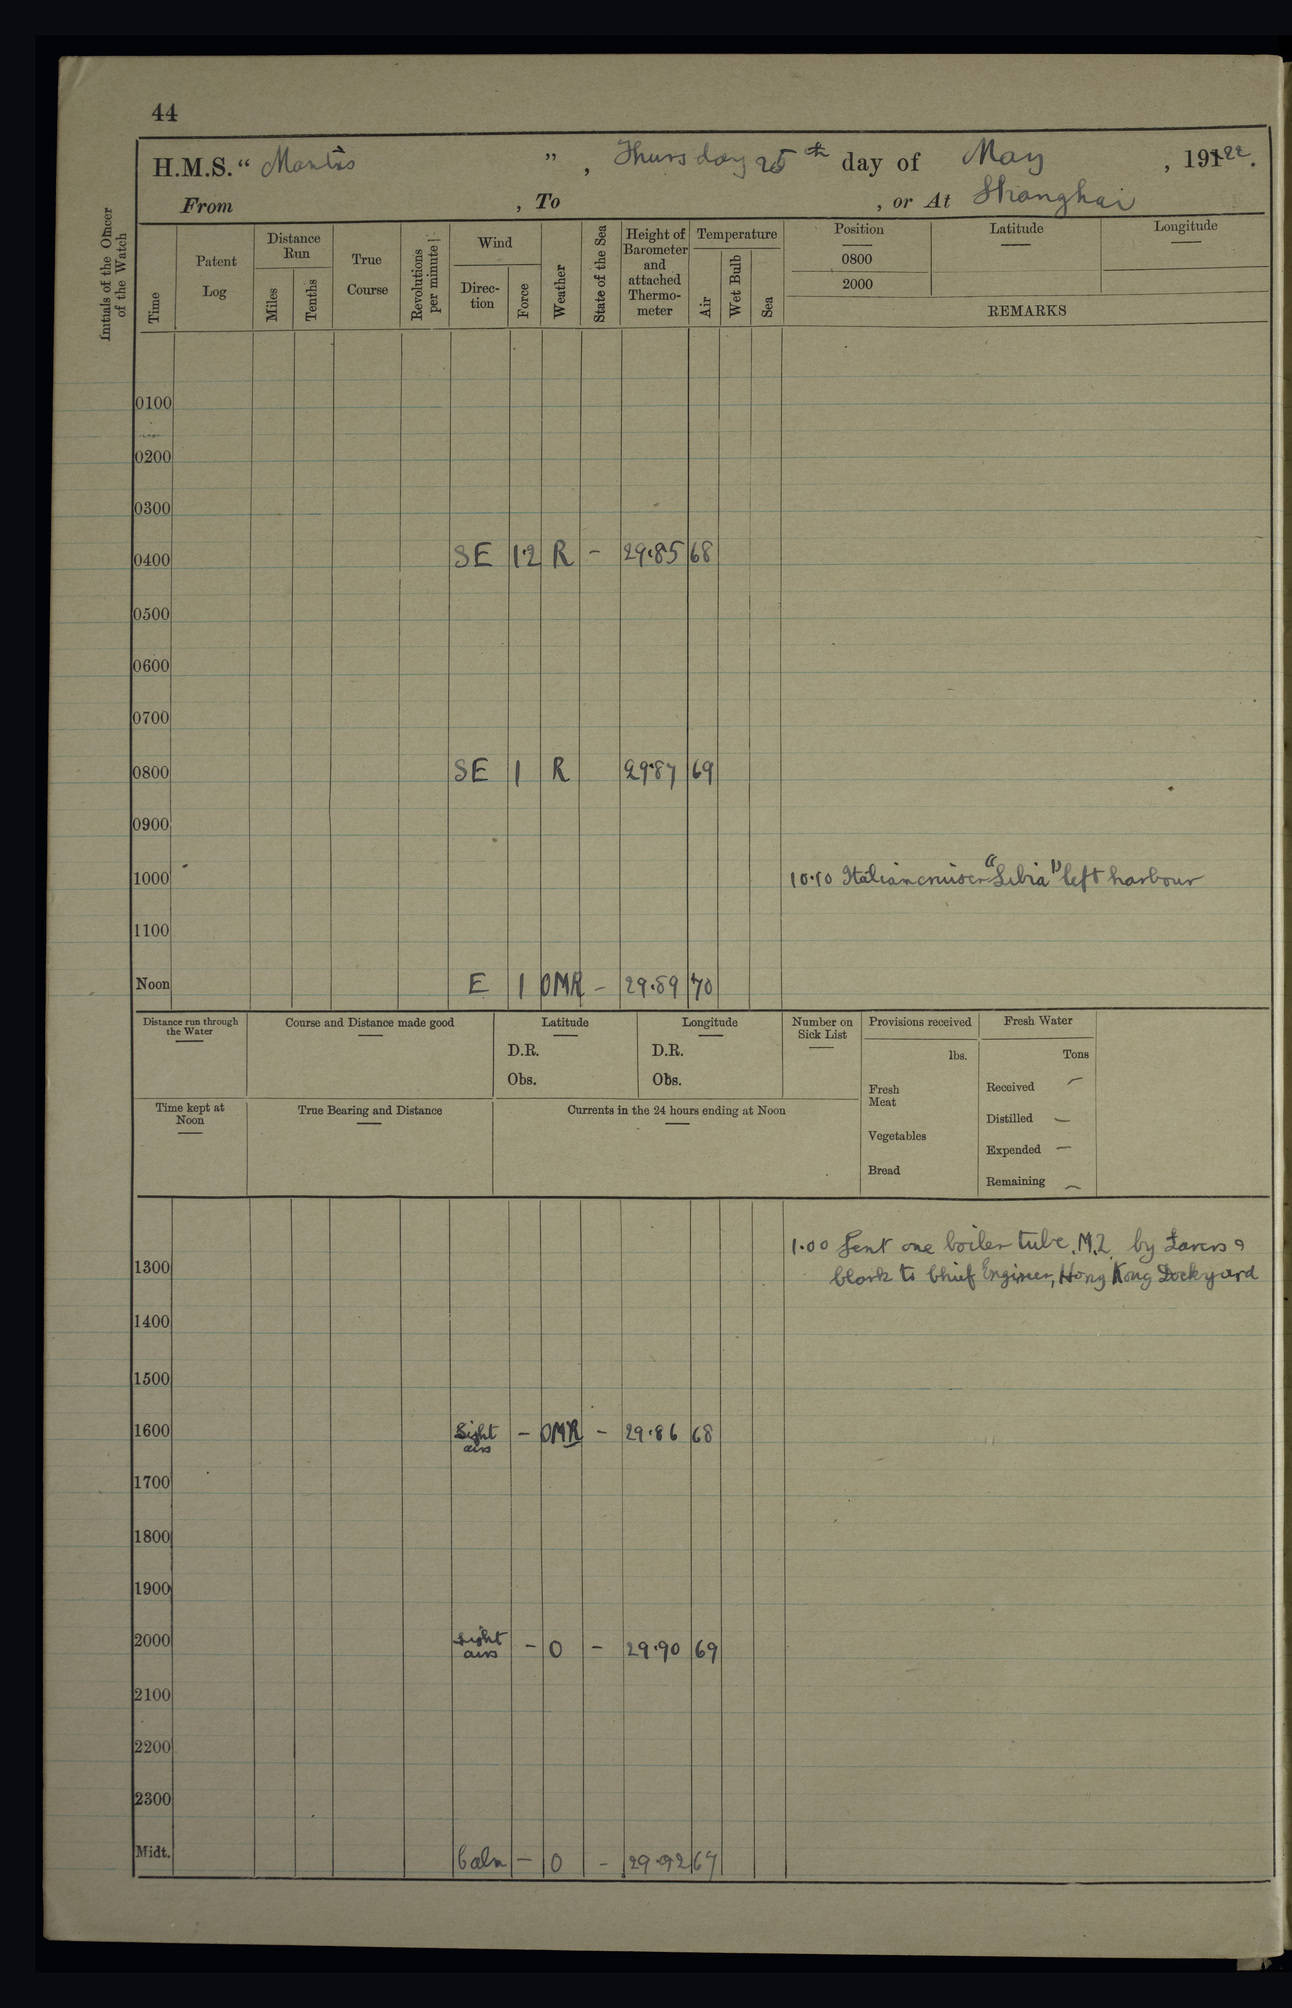 44
H.M.S. " Mantis " , Thursday 25th day of May , 1922.
From , To , or At Shanghai
Initials of the Officer of the Watch
Time
Patent Log
Distance Run
Miles
Tenths
True Course
Revolutions per minute
Wind
Direc-tion
Force
Weather
State of the Sea
Height of Barometer and attached Thermo-meter
Temperature
Air
Wet Bulb
Sea
Position
0800
2000
Latitude
Longitude
REMARKS
0100
0200
0300
0400 SE 1·2 R - 29·85 68
0500
0600
0700
0800 SE 1 R 29·87 69
0900
1000 10·10 Italian cruiser "Libia" left harbour
1100
Noon E 1 OMR - 29·89 70
Distance run through the Water
Course and Distance made good
Latitude
D.R.
Obs.
Longitude
D.R.
Obs.
Number on Sick List
Provisions received
lbs.
Fresh Meat
Vegetables
Bread
Fresh Water
Tons
Received -
Distilled -
Expended -
Remaining -
Time kept at Noon
True Bearing and Distance
Currents in the 24 hours ending at Noon
1·00 Sent one boiler tube, M.2, by Lavers &
1300 Clark to Chief Engineer, Hong Kong Dockyard
1400
1500
1600 Light airs - OMR - 29·86 68
1700
1800
1900
2000 Light airs - O - 29·90 69
2100
2200
2300
Midt. Calm - O - 29·92 67